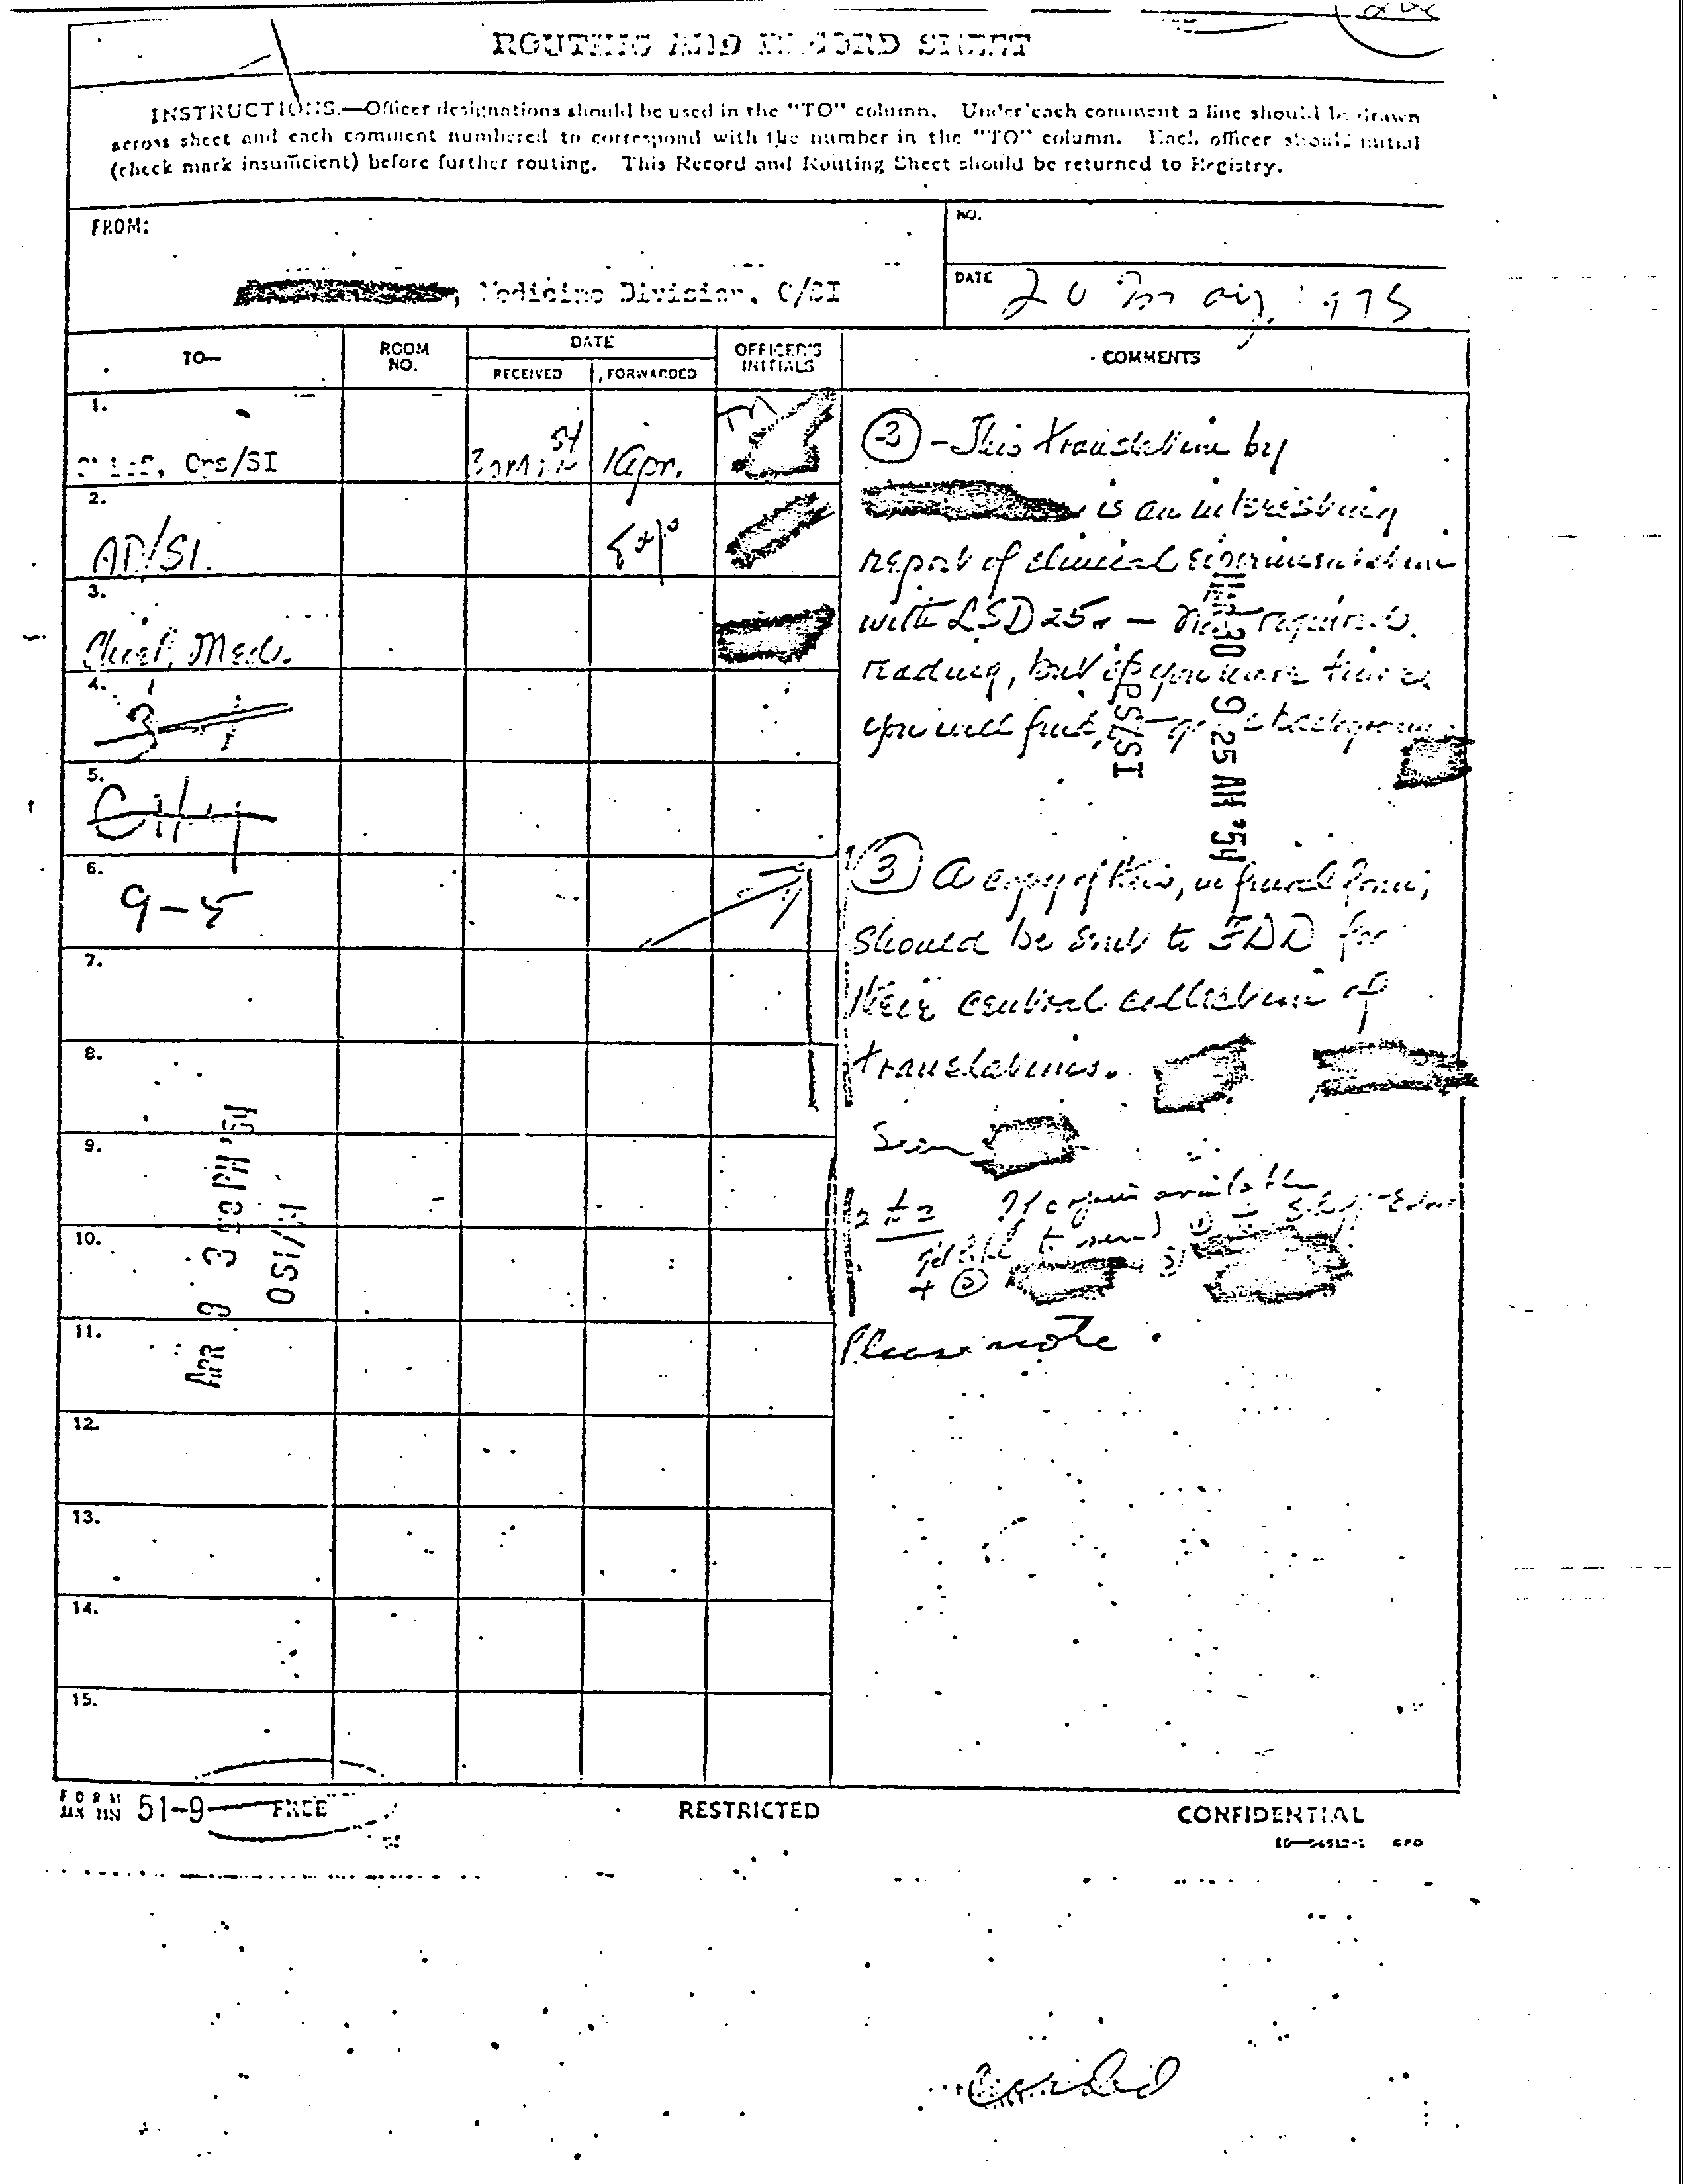 ROUTING AND RECORD SHEET
INSTRUCTIONS.—Officer designations should be used in the "TO" column. Under each comment a line should be drawn
across sheet and each comment numbered to correspond with the number in the "TO" column. Each officer should initial
(check mark insufficient) before further routing. This Record and Routing Sheet should be returned to Registry.
FROM:
NO.
, Medicine Division, O/SI
DATE
20 May
TO—
ROOM NO.
DATE
RECEIVED
FORWARDED
OFFICER'S INITIALS
COMMENTS
1.
Ops/SI
1 Apr.
2.
AD/SI.
3.
Chief, Med.
4.
5.
6.
9-5
7.
8.
9.
10.
11.
12.
13.
14.
15.
- This translation by
is an interesting
report of clinical experimentation
with LSD 25 - required
reading, but if you have time
you will find
30 9 25 AM '54
OPS/SI
3 A copy of this, in final form,
should be sent to FDD for
their central collection of
translations.
Seen
Please note.
APR 8 3 50 PM '54
OSI/M
FORM
51-9
FREE
RESTRICTED
CONFIDENTIAL
GPO